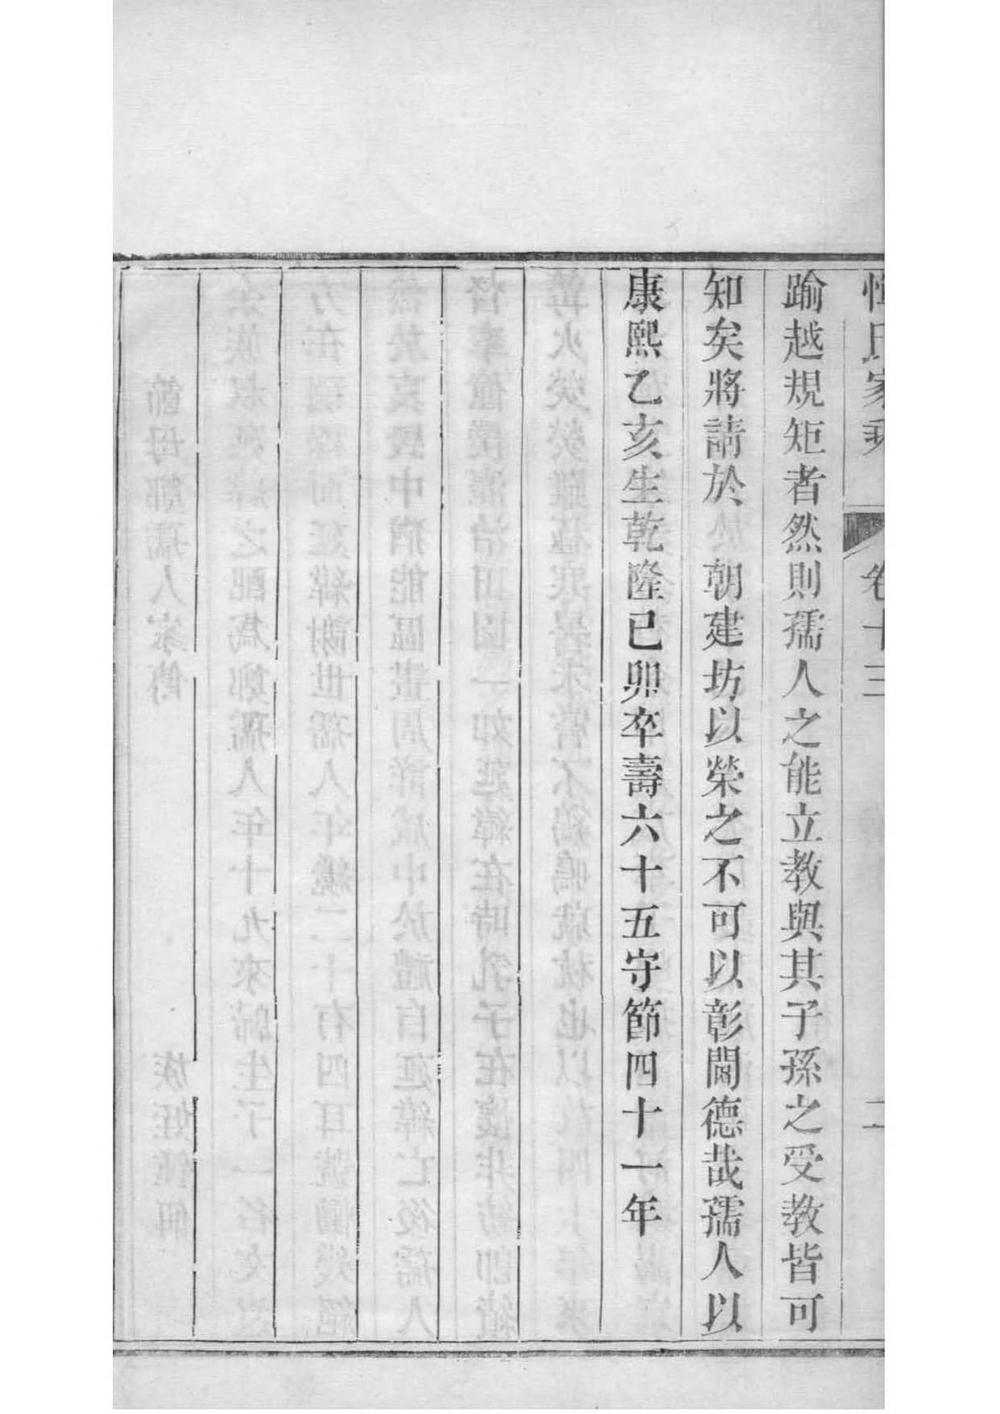 惲氏家乘 卷十三 二
踰越規矩者然則孺人之能立教與其子孫之受教皆可
知矣將請於 朝建坊以榮之不可以彰閫德哉孺人以
康熙乙亥生乾隆已卯卒壽六十五守節四十一年